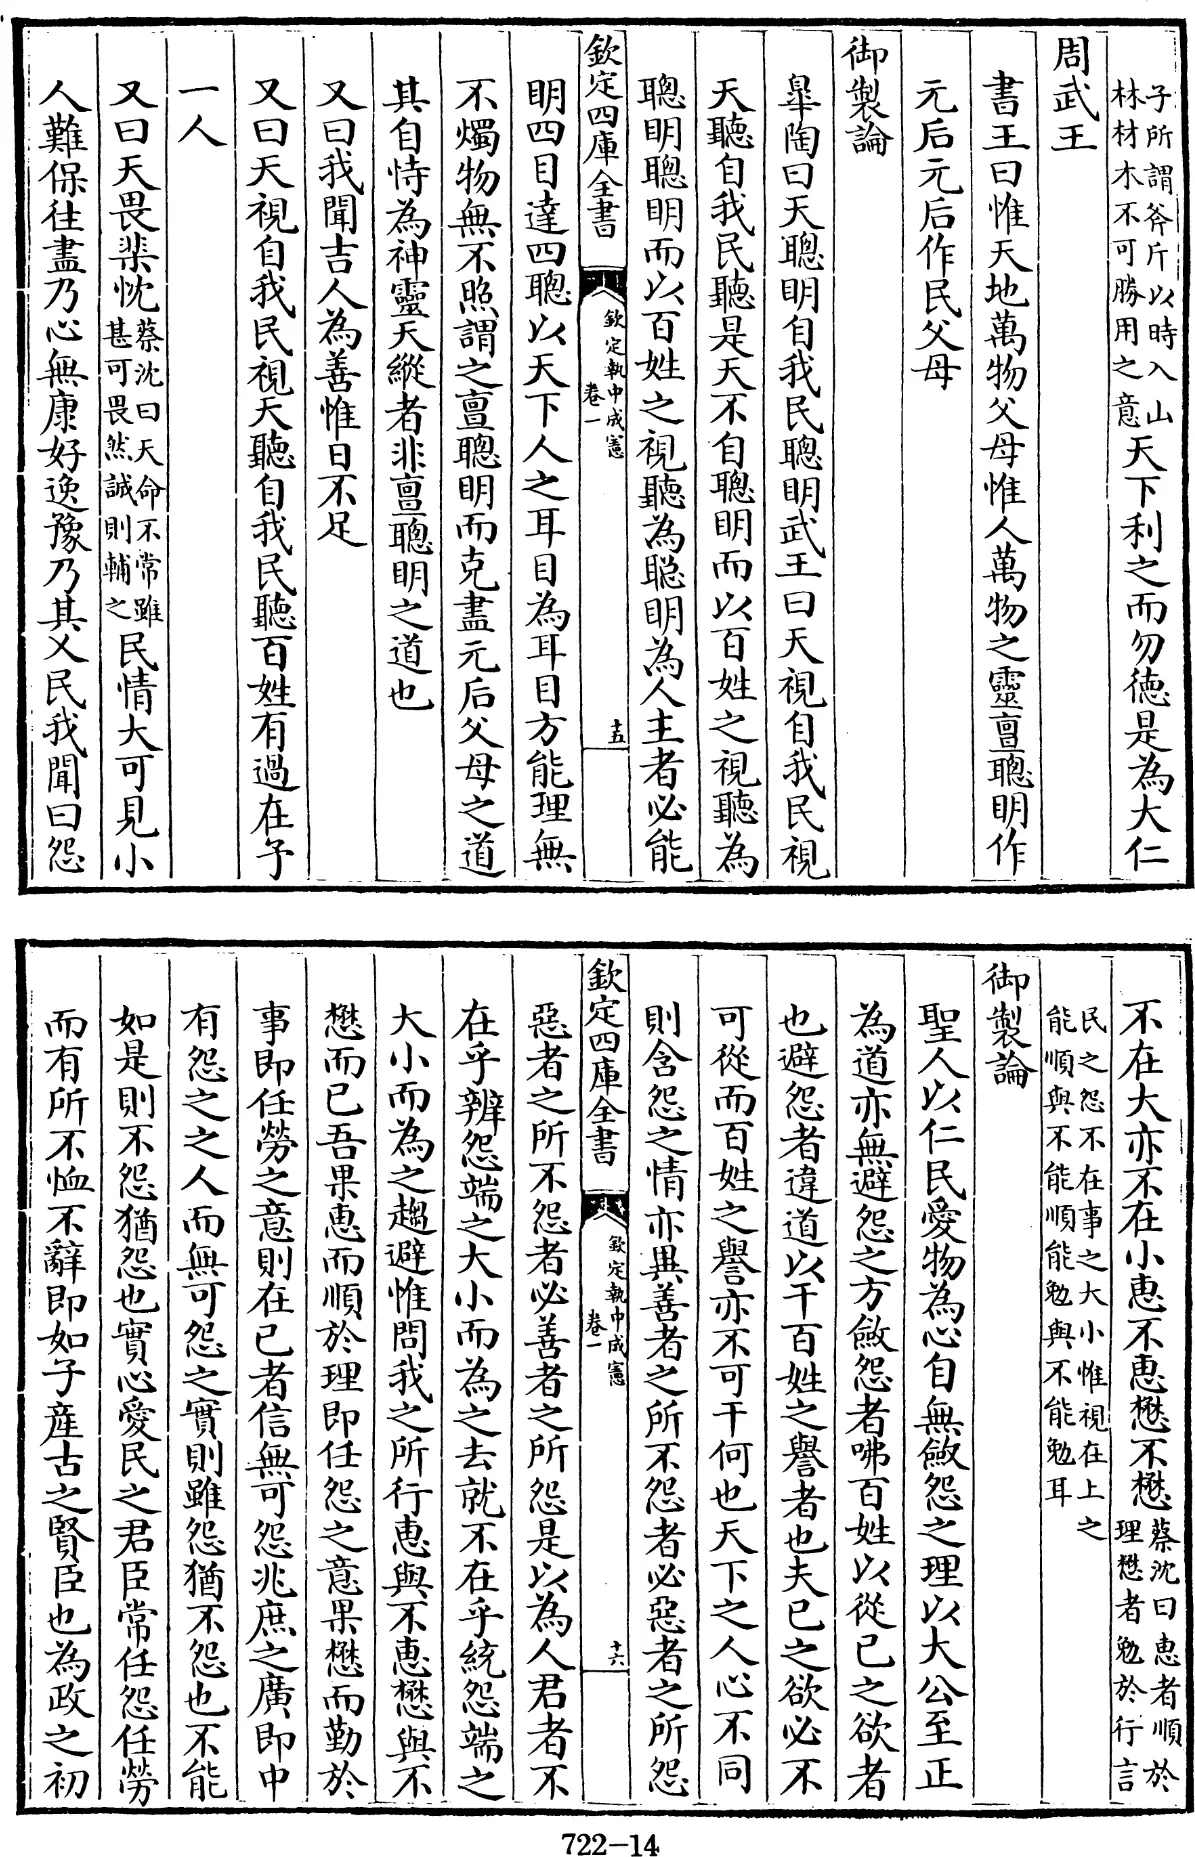 子所謂斧斤以時入山
林材木不可勝用之意天下利之而勿德是為大仁
周武王
書王曰惟天地萬物父母惟人萬物之靈亶聰明作
元后元后作民父母
御製論
臯陶曰天聰明自我民聰明武王曰天視自我民視
天聽自我民聽是天不自聰明而以百姓之視聽為
聰明聰明而以百姓之視聽為聰明為人主者必能
欽定四庫全書
欽定執中成憲
卷一
十五
明四目達四聰以天下人之耳目為耳目方能理無
不燭物無不照謂之亶聰明而克盡元后父母之道
其自恃為神靈天縱者非亶聰明之道也
又曰我聞吉人為善惟日不足
又曰天視自我民視天聽自我民聽百姓有過在予
一人
又曰天畏棐忱蔡沈曰天命不常雖
甚可畏然誠則輔之民情大可見小
人難保往盡乃心無康好逸豫乃其乂民我聞曰怨
不在大亦不在小惠不惠懋不懋蔡沈曰惠者順於
理懋者勉於行言
民之怨不在事之大小惟視在上之
能順與不能順能勉與不能勉耳
御製論
聖人以仁民愛物為心自無斂怨之理以大公至正
為道亦無避怨之方斂怨者咈百姓以從己之欲者
也避怨者違道以干百姓之譽者也夫己之欲必不
可從而百姓之譽亦不可干何也天下之人心不同
則含怨之情亦異善者之所不怨者必惡者之所怨
欽定四庫全書
欽定執中成憲
卷一
十六
惡者之所不怨者必善者之所怨是以為人君者不
在乎辨怨端之大小而為之去就不在乎統怨端之
大小而為之趨避惟問我之所行惠與不惠懋與不
懋而已吾果惠而順於理即任怨之意果懋而勤於
事即任勞之意則在己者信無可怨兆庶之廣即中
有怨之之人而無可怨之實則雖怨猶不怨也不能
如是則不怨猶怨也實心愛民之君臣常任怨任勞
而有所不恤不辭即如子產古之賢臣也為政之初
722-14